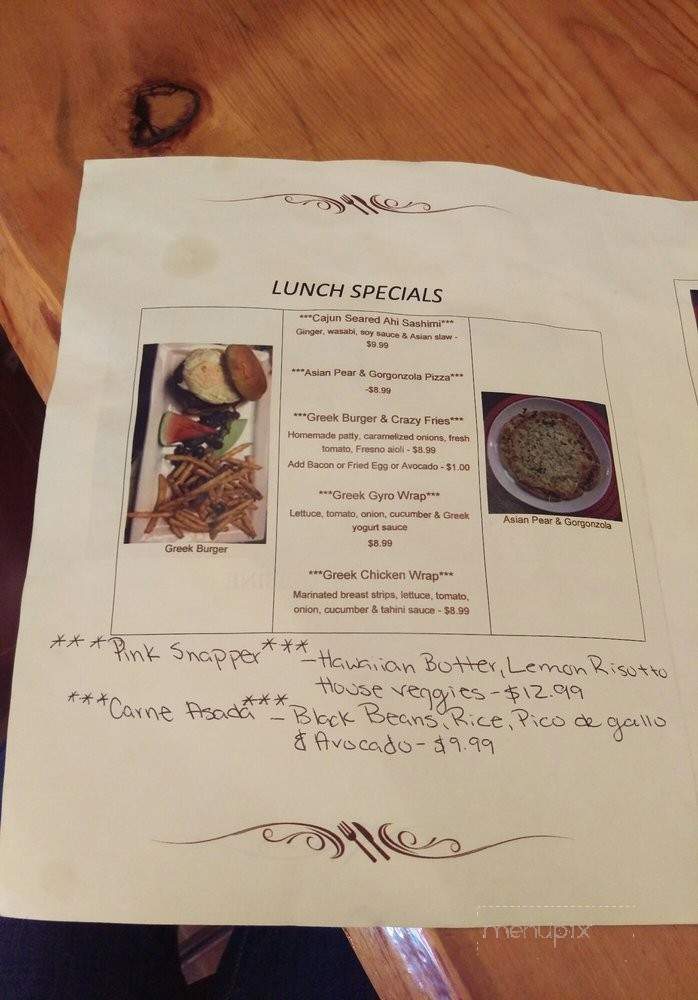 LUNCH SPECIALS
***Cajun Seared Ahi Sashimi***
Ginger, wasabi, soy sauce & Asian slaw -
$9.99
***Asian Pear & Gorgonzola Pizza***
-$8.99
***Greek Burger & Crazy Fries***
Homemade patty, caramelized onions, fresh
tomato, Fresno aioli - $8.99
Add Bacon or Fried Egg or Avocado - $1.00
***Greek Gyro Wrap***
Lettuce, tomato, onion, cucumber & Greek
yogurt sauce
$8.99
***Greek Chicken Wrap***
Marinated breast strips, lettuce, tomato,
onion, cucumber & tahini sauce - $8.99
Greek Burger
Asian Pear & Gorgonzola
***Pink Snapper*** - Hawaiian Butter, Lemon Risotto
House veggies - $12.99
***Carne Asada*** - Black Beans, Rice, Pico de gallo
& Avocado - $9.99
menupix